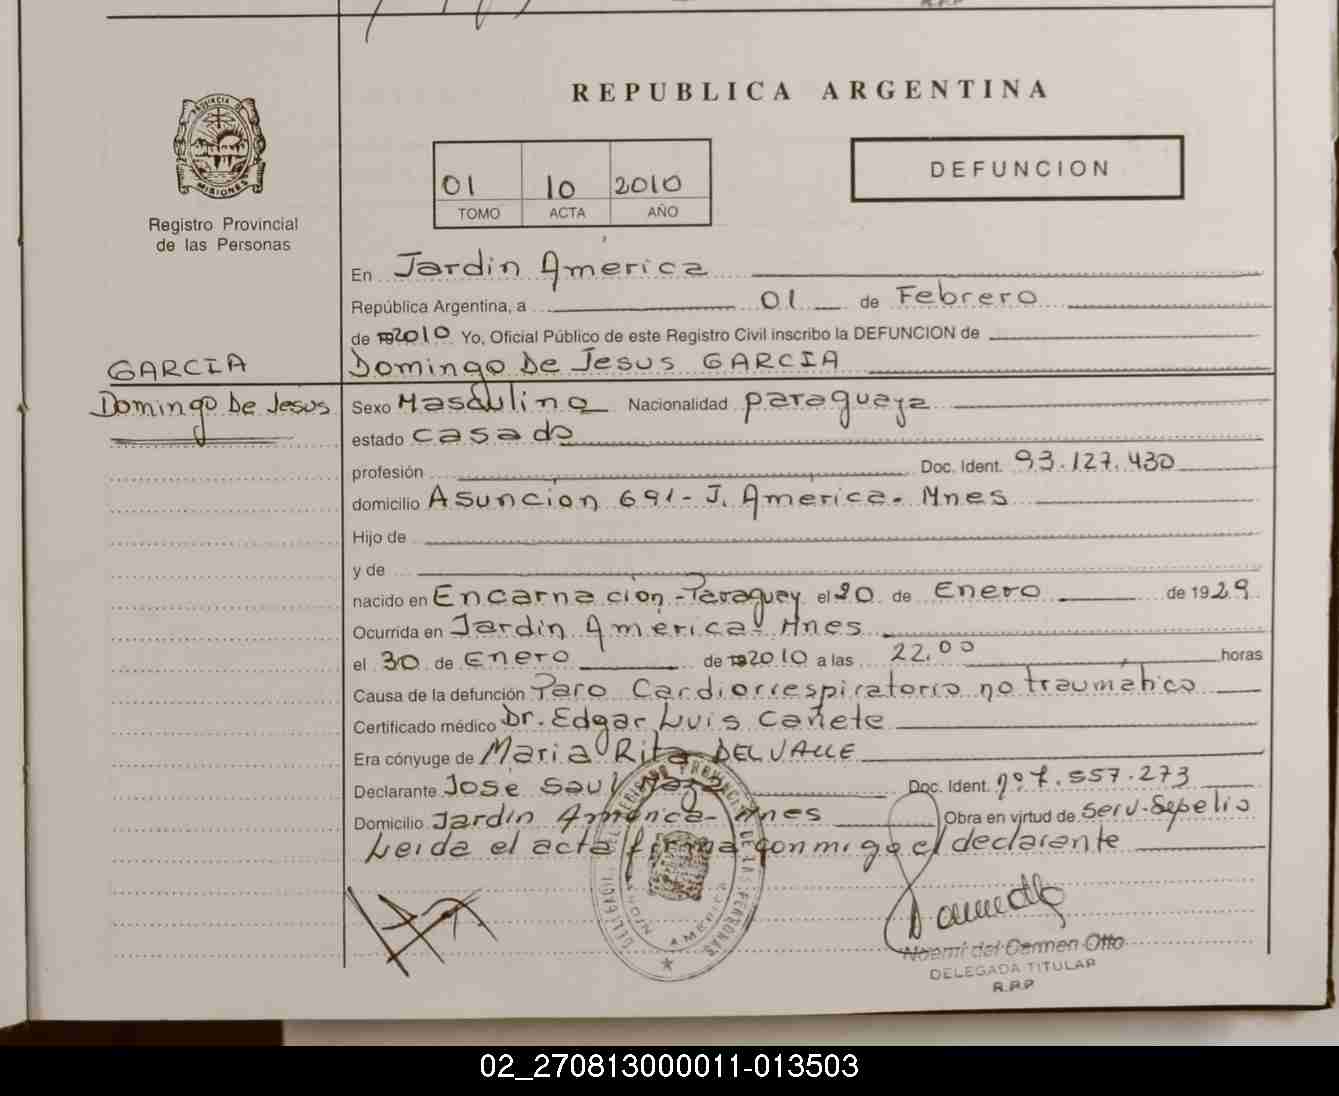 REPUBLICA ARGENTINA
PROVINCIA DE MISIONES
Registro Provincial
de las Personas
01 10 2010
TOMO ACTA AÑO
DEFUNCION
En Jardín América
República Argentina, a 01 de Febrero
de 192010 Yo, Oficial Público de este Registro Civil inscribo la DEFUNCION de
GARCIA
Domingo De Jesús
Domingo De Jesus GARCIA
Sexo Masculino Nacionalidad paraguaya
estado casado
profesión Doc. Ident. 93.127.430
domicilio Asunción 691 - J. América. Mnes
Hijo de
y de
nacido en Encarnación - Paraguay el 20 de Enero de 1929
Ocurrida en Jardín América - Mnes
el 30 de Enero de 192010 a las 22,00 horas
Causa de la defunción Paro Cardiorrespiratorio no traumático
Certificado médico Dr. Edgar Luis Cañete
Era cónyuge de María Rita DEL VALLE
Declarante José Saul Doc. Ident. nº 7.557.273
Domicilio Jardín América - Mnes Obra en virtud de Serv. Sepelio
Leida el acta firma conmigo el declarante
DELEGACION DEL REGISTRO PROVINCIAL DE LAS PERSONAS
JARDIN AMERICA
Noemí del Carmen Otto
DELEGADA TITULAR
R.P.P
02_270813000011-013503